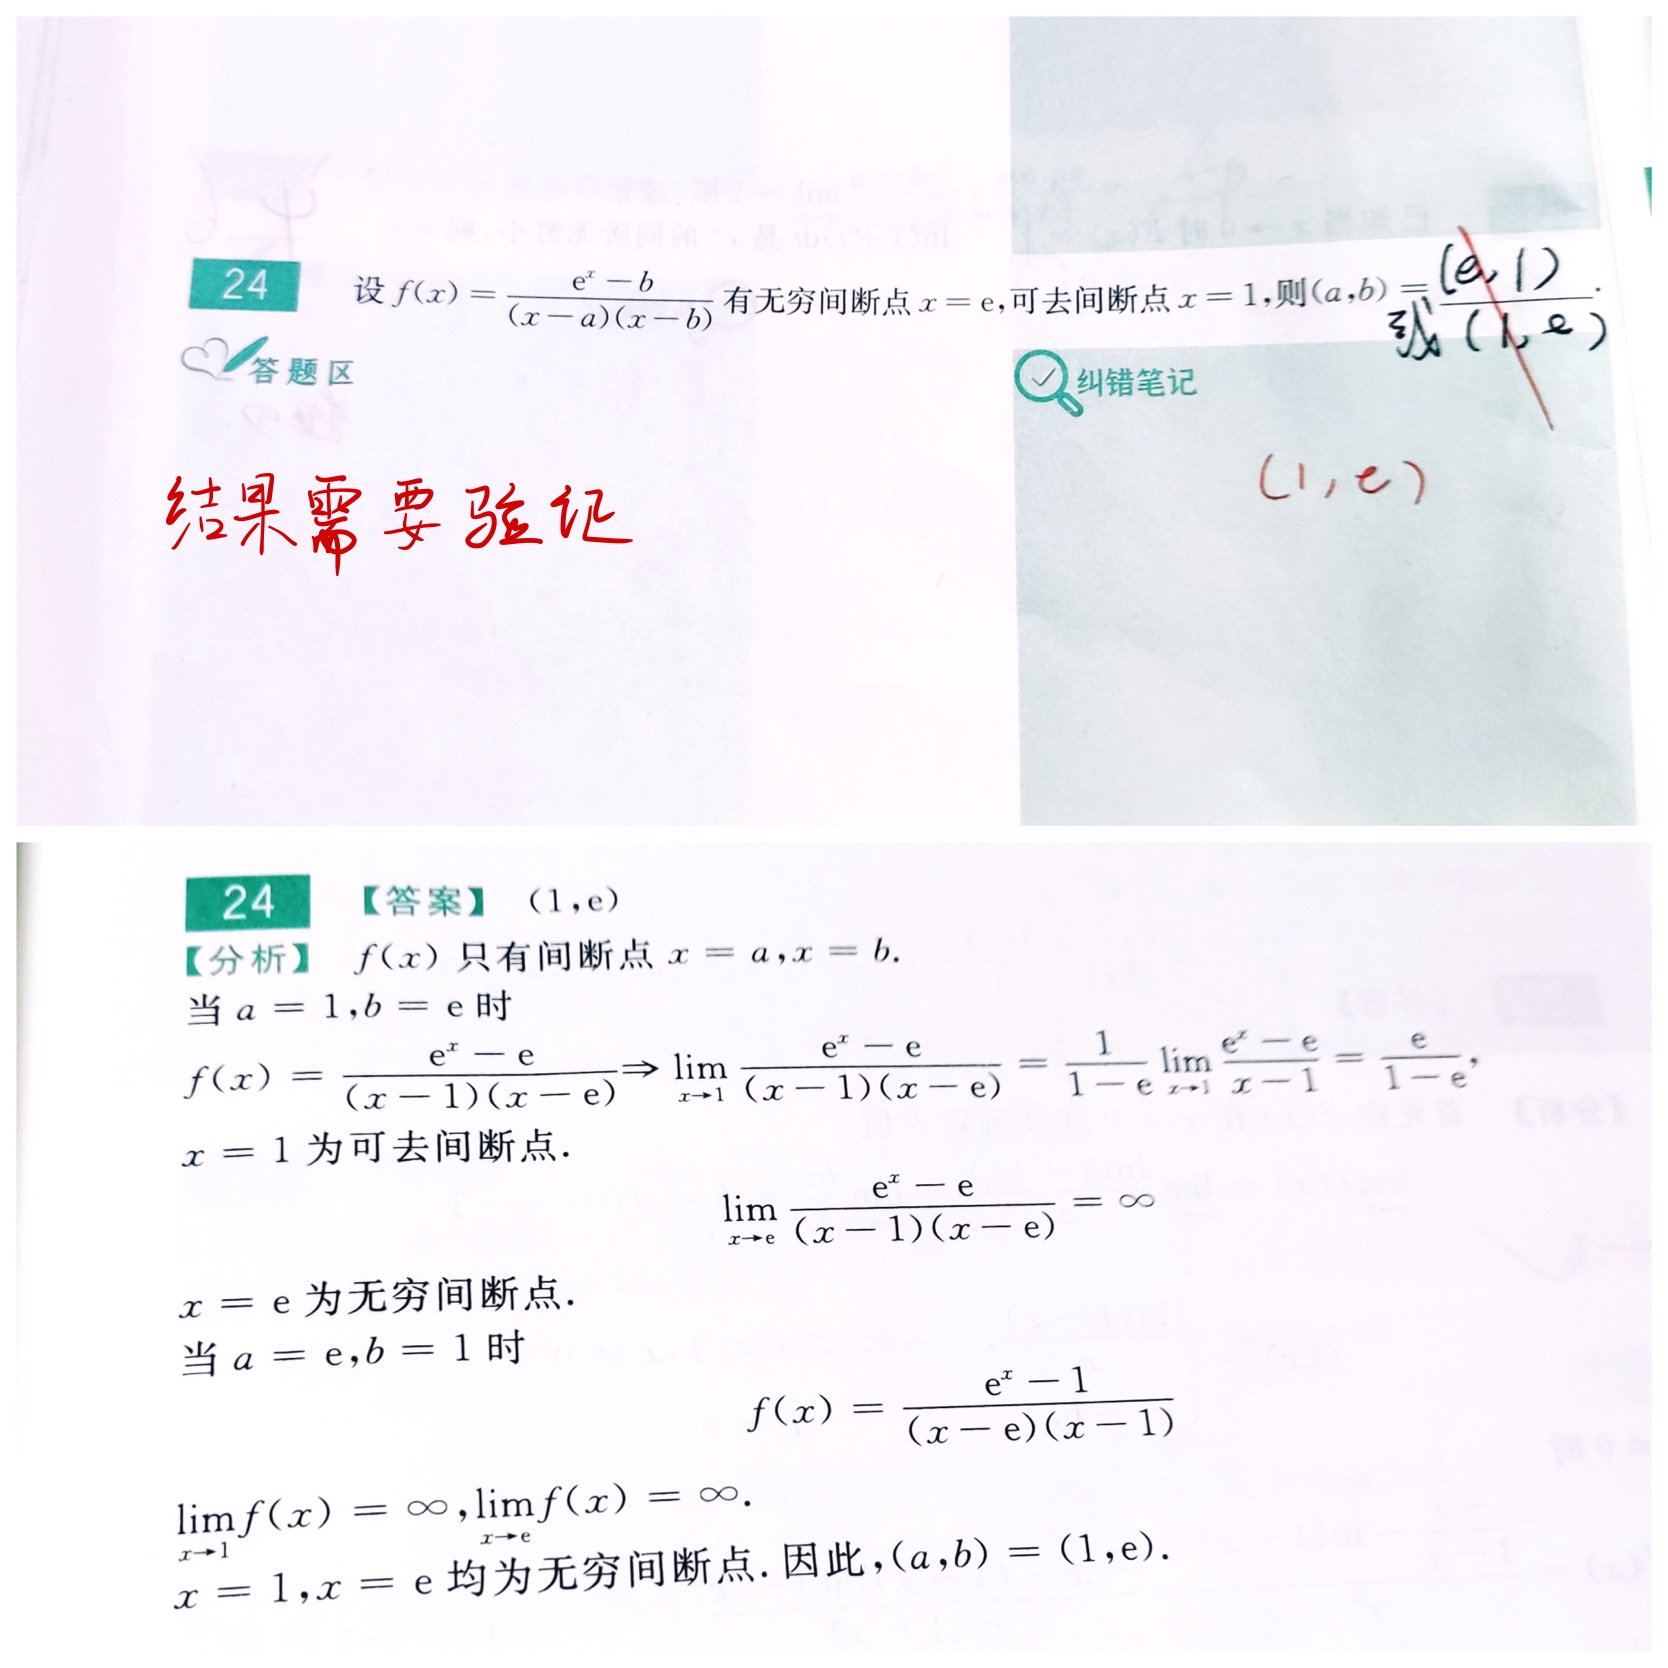 24 设 f(x) = (e^x − b)/((x − a)(x − b)) 有无穷间断点 x = e,可去间断点 x = 1,则(a,b) = (e,1).
或(1,e)
答题区
纠错笔记
(1,e)
结果需要验证
24 【答案】 (1,e)
【分析】 f(x) 只有间断点 x = a,x = b.
当 a = 1,b = e 时
f(x) = (e^x − e)/((x − 1)(x − e)) ⇒ lim_{x→1} (e^x − e)/((x − 1)(x − e)) = 1/(1 − e) lim_{x→1} (e^x − e)/(x − 1) = e/(1 − e),
x = 1 为可去间断点.
lim_{x→e} (e^x − e)/((x − 1)(x − e)) = ∞
x = e 为无穷间断点.
当 a = e,b = 1 时
f(x) = (e^x − 1)/((x − e)(x − 1))
lim_{x→1} f(x) = ∞,lim_{x→e} f(x) = ∞.
x = 1,x = e 均为无穷间断点. 因此,(a,b) = (1,e).